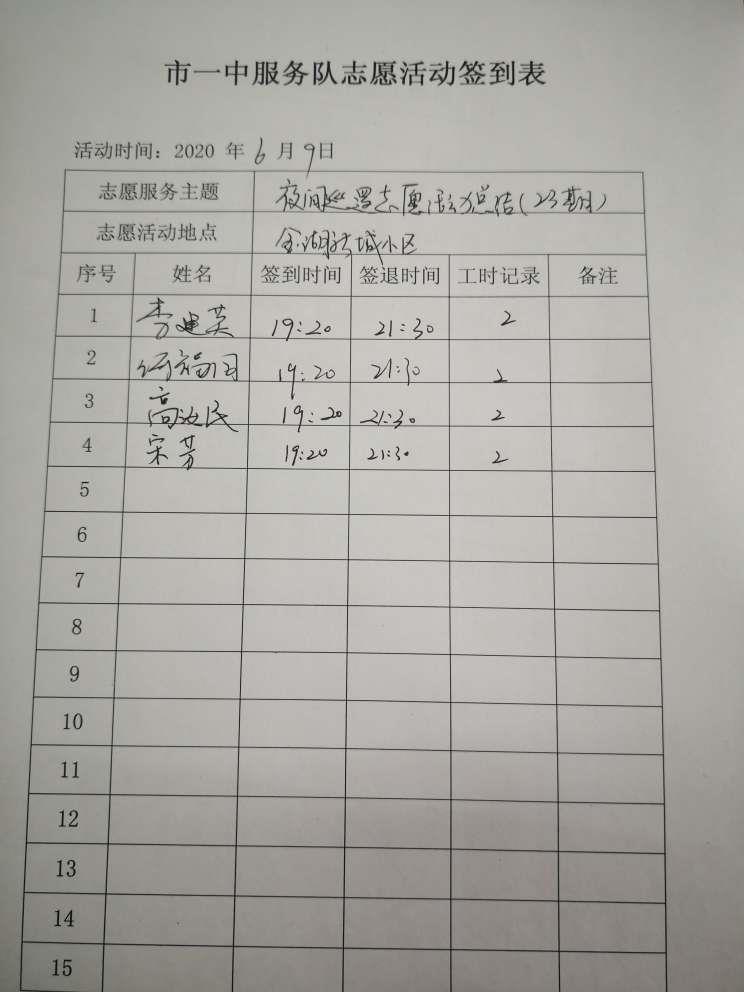 市一中服务队志愿活动签到表
活动时间：2020 年 6 月 9日
志愿服务主题 夜间巡逻志愿活动总结(23期)
志愿活动地点 金湖新城小区
序号 姓名 签到时间 签退时间 工时记录 备注
1 李建英 19:20 21:30 2
2 19:20 21:30 2
3 高 民 19:20 21:30 2
4 宋芳 19:20 21:30 2
5
6
7
8
9
10
11
12
13
14
15